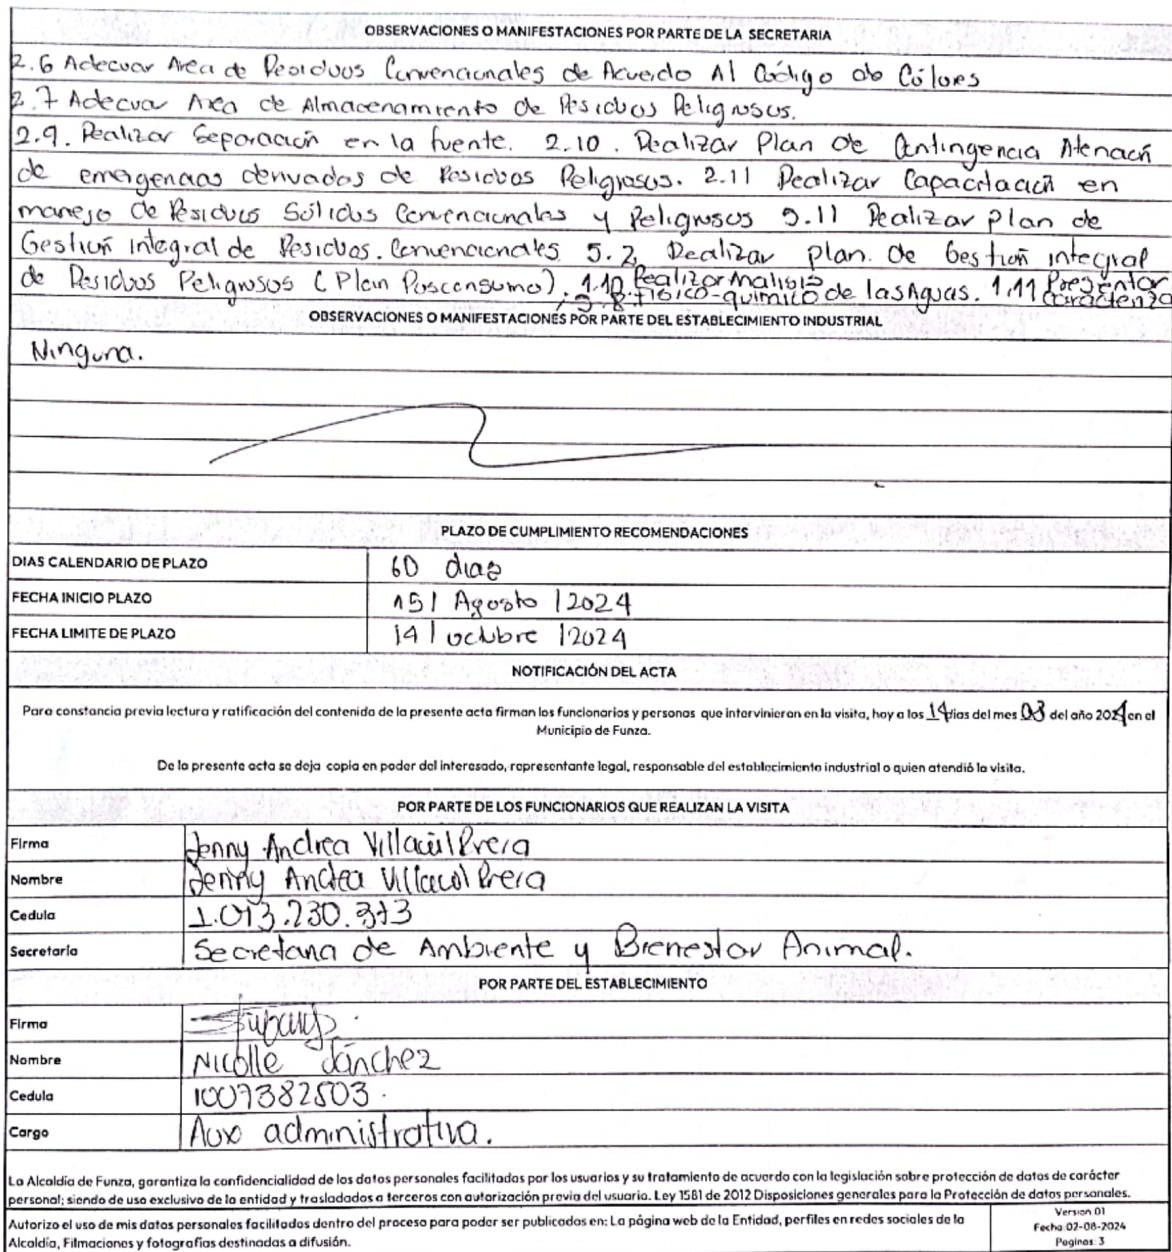 OBSERVACIONES O MANIFESTACIONES POR PARTE DE LA SECRETARIA
2.6 Adecuar Area de Residuos Convencionales de Acuerdo Al Código de Cólores
2.7 Adecuar Area de Almacenamiento de Residuos Peligrosos.
2.9. Realizar Separación en la fuente. 2.10. Realizar Plan de Contingencia Atención
de emergencias derivados de Residuos Peligrosos. 2.11 Realizar Capacitación en
manejo de Residuos Sólidos Convencionales y Peligrosos 5.11 Realizar plan de
Gestión integral de Residuos. Convencionales 5.2, Realizar plan. de Gestión integral
de Residuos Peligrosos (Plan Posconsumo). 1.10 Realizar Analisis
Fisico-quimico de las Aguas. 1.11 Presentar
OBSERVACIONES O MANIFESTACIONES POR PARTE DEL ESTABLECIMIENTO INDUSTRIAL
Ninguna.
PLAZO DE CUMPLIMIENTO RECOMENDACIONES
DIAS CALENDARIO DE PLAZO 60 dias
FECHA INICIO PLAZO 15 | Agosto | 2024
FECHA LIMITE DE PLAZO 14 | octubre | 2024
NOTIFICACIÓN DEL ACTA
Para constancia previa lectura y ratificación del contenido de la presente acta firman los funcionarios y personas que intervinieron en la visita, hoy a los 14 dias del mes 08 del año 2024 en el
Municipio de Funza.
De la presente acta se deja copia en poder del interesado, representante legal, responsable del establecimiento industrial o quien atendió la visita.
POR PARTE DE LOS FUNCIONARIOS QUE REALIZAN LA VISITA
Firma Jenny Andrea Villacol
Nombre Jenny Andrea Villacol
Cedula 1.073.230.373
Secretaria Secretaria de Ambiente y Bienestar Animal.
POR PARTE DEL ESTABLECIMIENTO
Firma
Nombre Nicolle Sánchez
Cedula 1007382503.
Cargo Aux administrativa.
La Alcaldía de Funza, garantiza la confidencialidad de los datos personales facilitados por los usuarios y su tratamiento de acuerdo con la legislación sobre protección de datos de carácter
personal; siendo de uso exclusivo de la entidad y trasladados a terceros con autorización previa del usuario. Ley 1581 de 2012 Disposiciones generales para la Protección de datos personales.
Autorizo el uso de mis datos personales facilitados dentro del proceso para poder ser publicados en: La página web de la Entidad, perfiles en redes sociales de la
Alcaldía, Filmaciones y fotografías destinadas a difusión.
Version 01
Fecha 02-08-2024
Paginas: 3